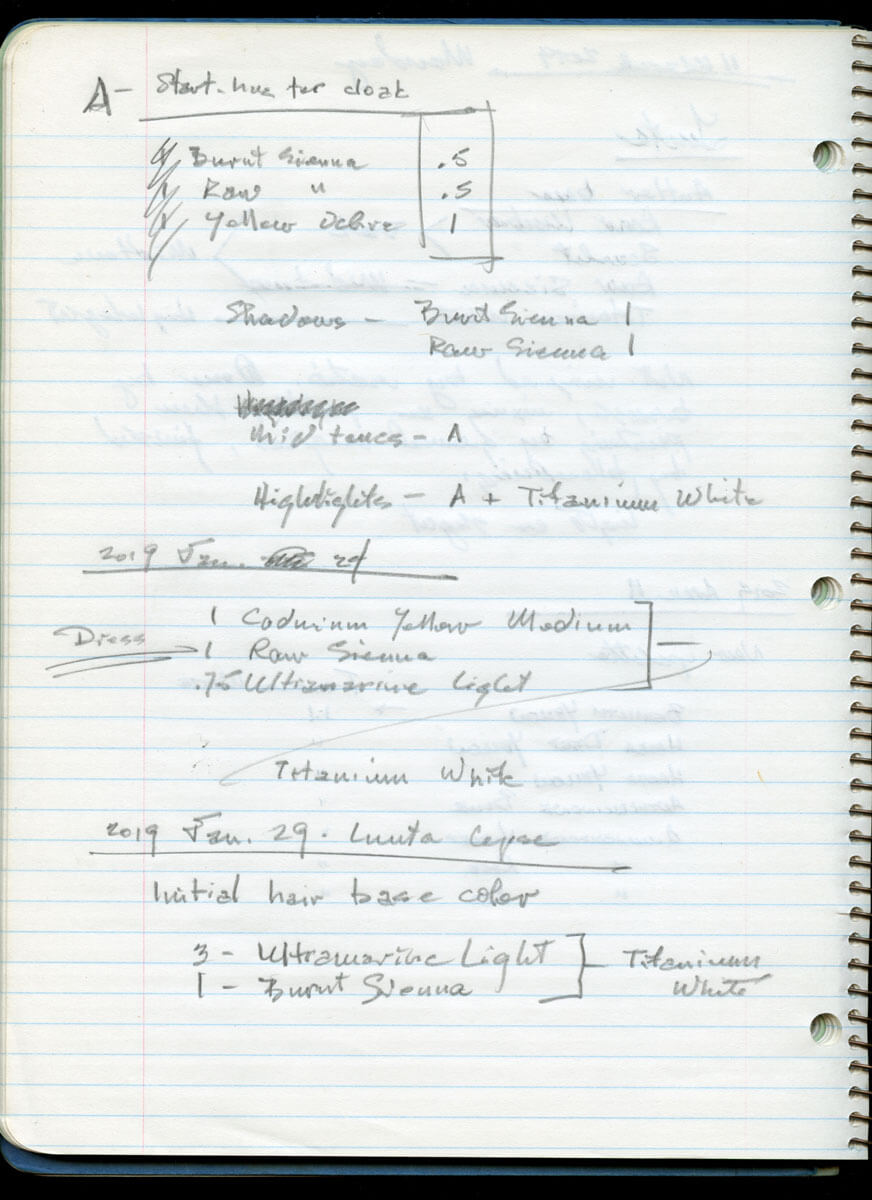 A - Start. hue for cloak
Burnt Sienna .5
1 Raw " .5
1 Yellow Ochre 1
Shadows - Burnt Sienna 1
Raw Sienna 1
Mid tones - A
Highlights - A + Titanium White
2019 Jan.
1 Cadmium Yellow Medium
Dress 1 Raw Sienna
.75 Ultramarine Light
Titanium White
2019 Jan. 29.
Initial hair base color
3 - Ultramarine Light Titanium
1 - Burnt Sienna White